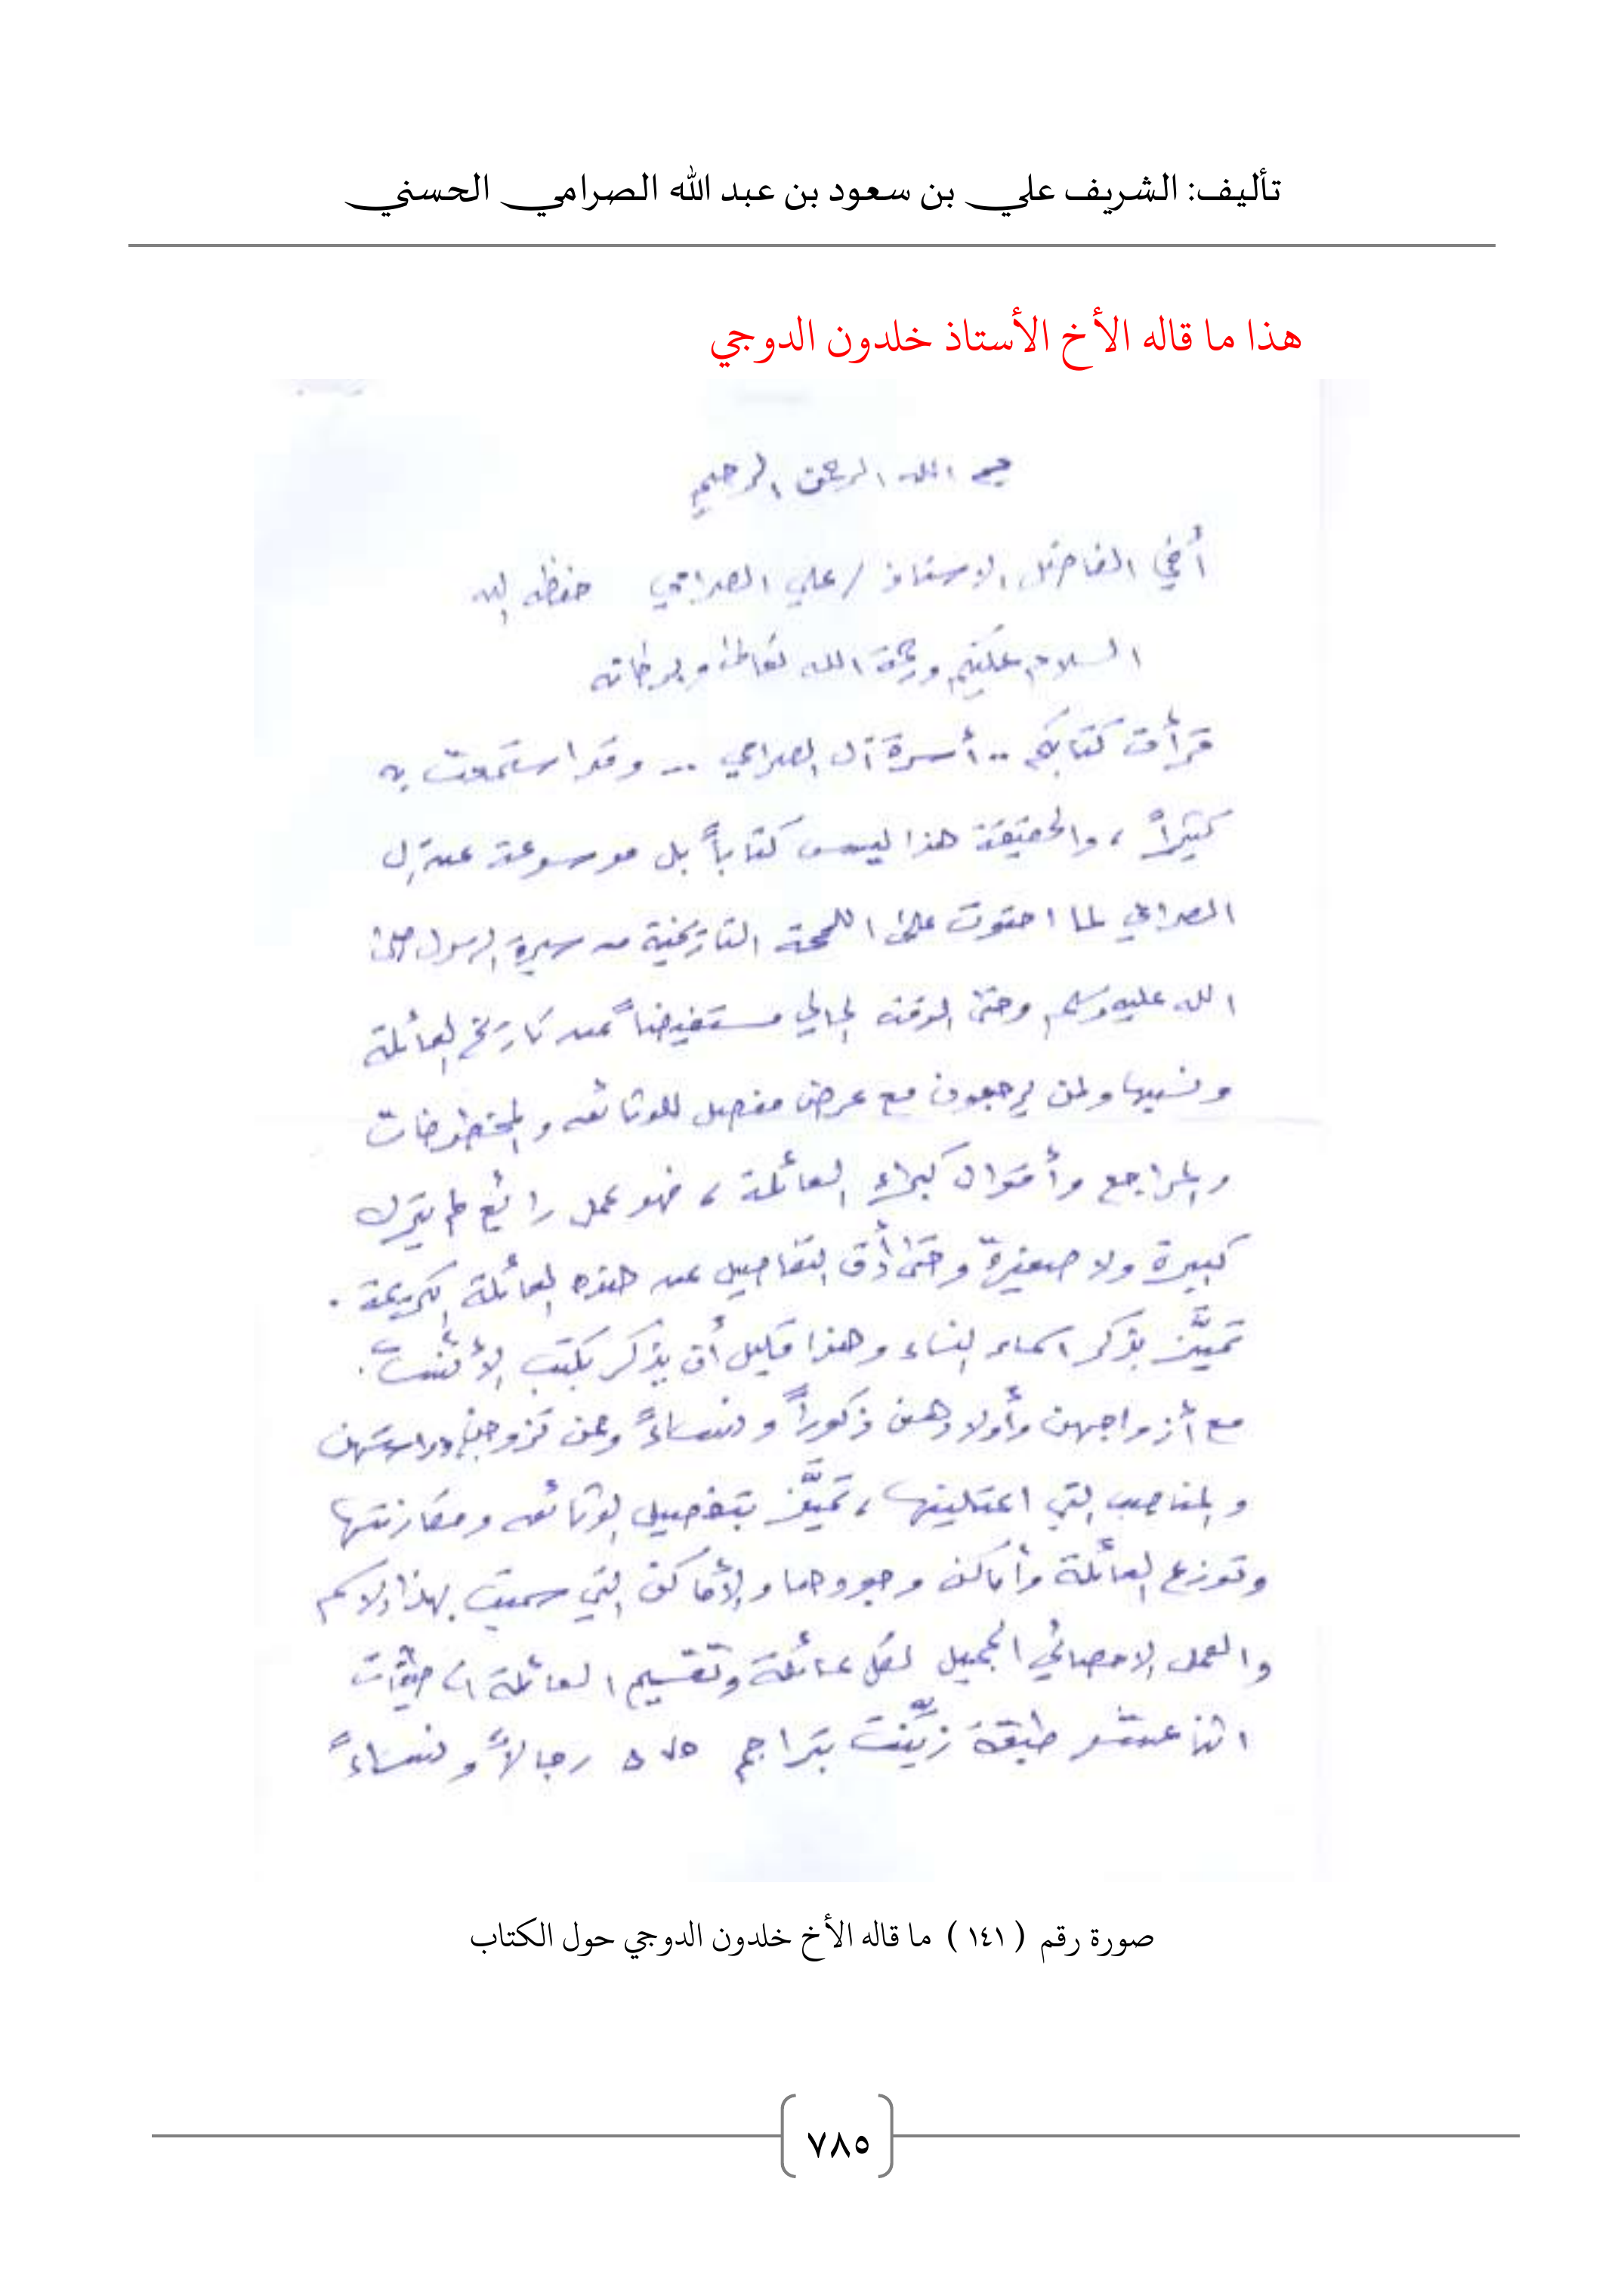 تأليف: الشريف علي بن سعود بن عبد الله الصرامي الحسني
هذا ما قاله الأخ الأستاذ خلدون الدوجي
بسم الله الرحمن الرحيم
أخي الفاضل الاستاذ / علي الصرامي حفظه الله
السلام عليكم ورحمة الله تعالى وبركاته
قرأت كتابكم .. أسرة آل الصرامي .. وقد استمتعت به
كثيراً ، والحقيقة هذا ليس كتاباً بل موسوعة عن آل
الصرامي لما احتوت على اللمحة التاريخية من سيرة الرسول صلى
الله عليه وسلم وحتى الوقت الحالي مستفيضاً عن تاريخ العائلة
ونسبها ولمن يرجعون مع عرض مفصل للوثائق والمخطوطات
والمراجع وأقوال كبراء العائلة ، فهو عمل رائع لم يترك
كبيرة ولا صغيرة وحتى أدق التفاصيل عن هذه العائلة الكريمة .
تميَّز بذكر اسماء النساء وهذا قليل أن يذكر بكتب الأنساب .
مع أزواجهن وأولادهن ذكوراً ونساءً وعمن تزوجن ودراستهن
والمناصب التي اعتلينها ، تميَّز بتفصيل الوثائق ومقارنتها
وتوزع العائلة وأماكن وجودها والأماكن التي سميت بهذا الاسم
والعمل الاحصائي الجميل لكل عائلة وتقسيم العائلة
اثنا عشر طبقة زيِّنت بتراجم ٥٧٥ رجالاً ونساءً
صورة رقم ( ١٤١ ) ما قاله الأخ خلدون الدوجي حول الكتاب
٧٨٥